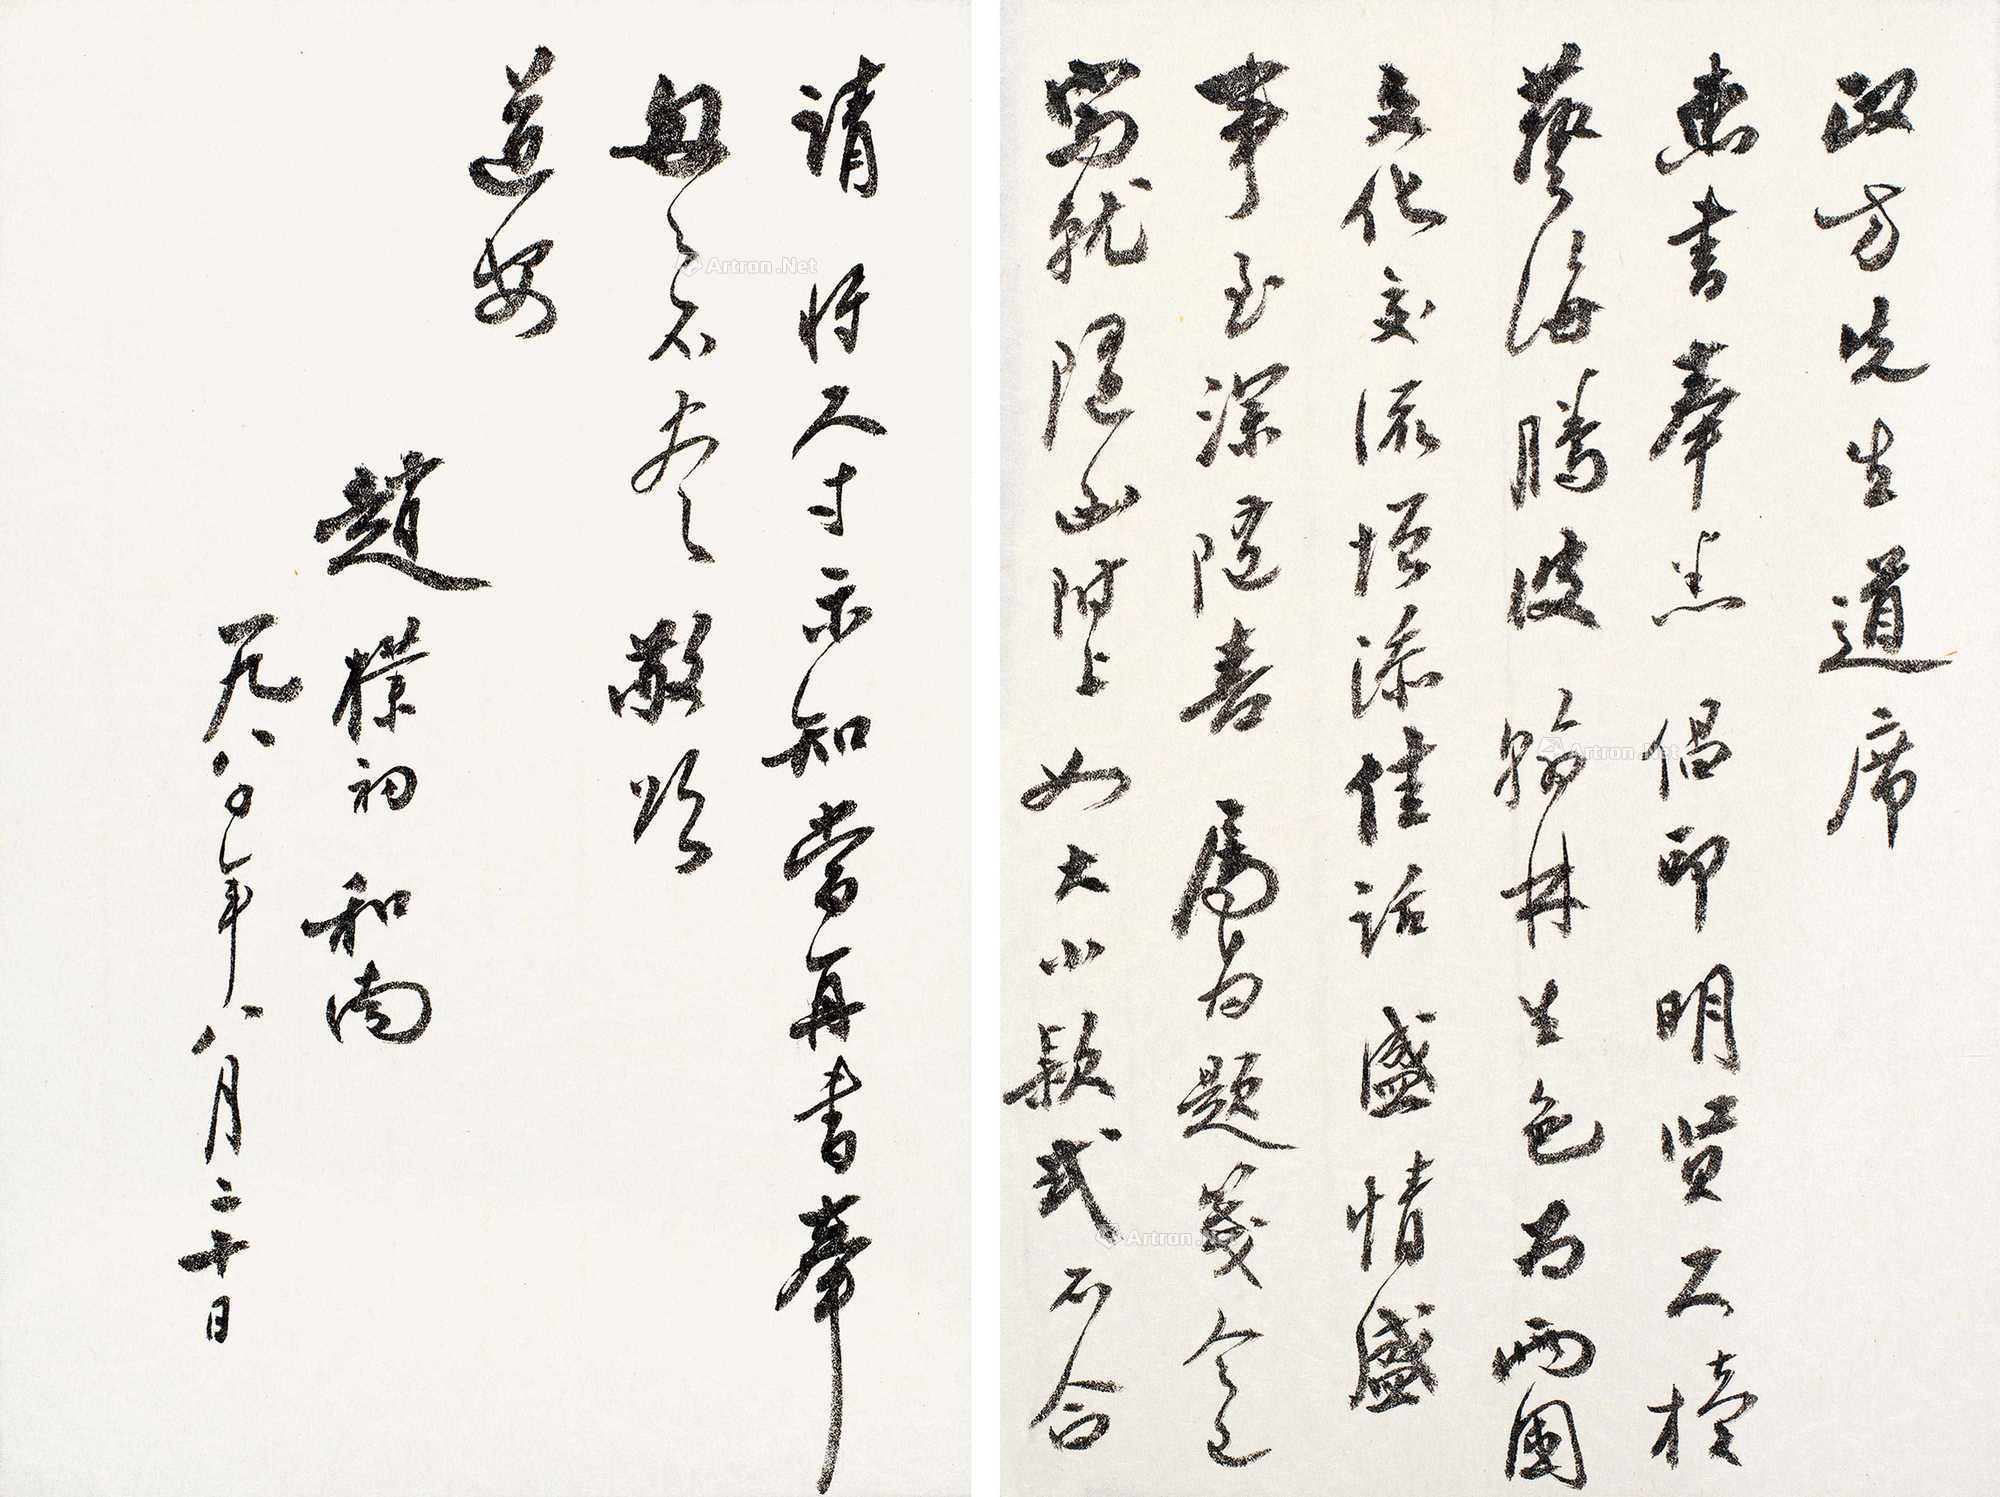 政方先生道席
惠書奉悉 倡印明贤尺牍
藝海腾波 翰林生色 为兩國
文化交流增添佳话 盛情盛
事 至深随喜 属为题箋 今已
写就 随函附上 如大小款式不合
請将尺寸示知 當再書奉
匆匆不尽 敬颂
道安
趙樸初 和南
一九八年八月二十日
Artron.Net
Artron.Net
Artron.Net